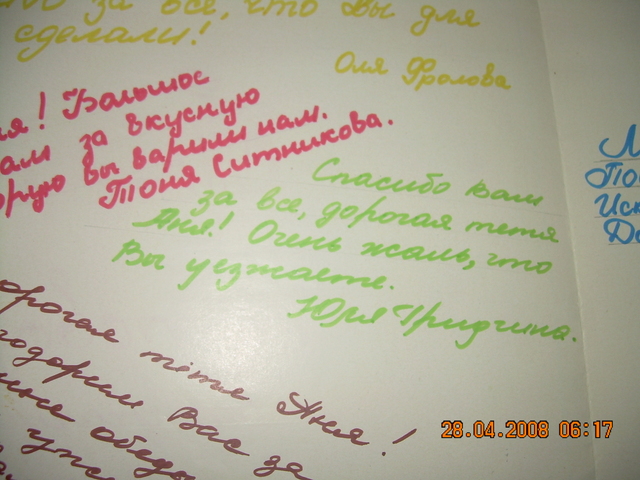 за все, что Вы для
сделали!
Оля Фролова
ия! Большое
вам за вкусную
орую вы варили нам.
Тоня Ситникова.
Спасибо Вам
за все, дорогая тетя
Аня! Очень жаль, что
Вы уезжаете.
Юля Гридчина.
орогая тётя Аня!
годарим Вас за
обеды
По
Иск
До
28.04.2008 06:17